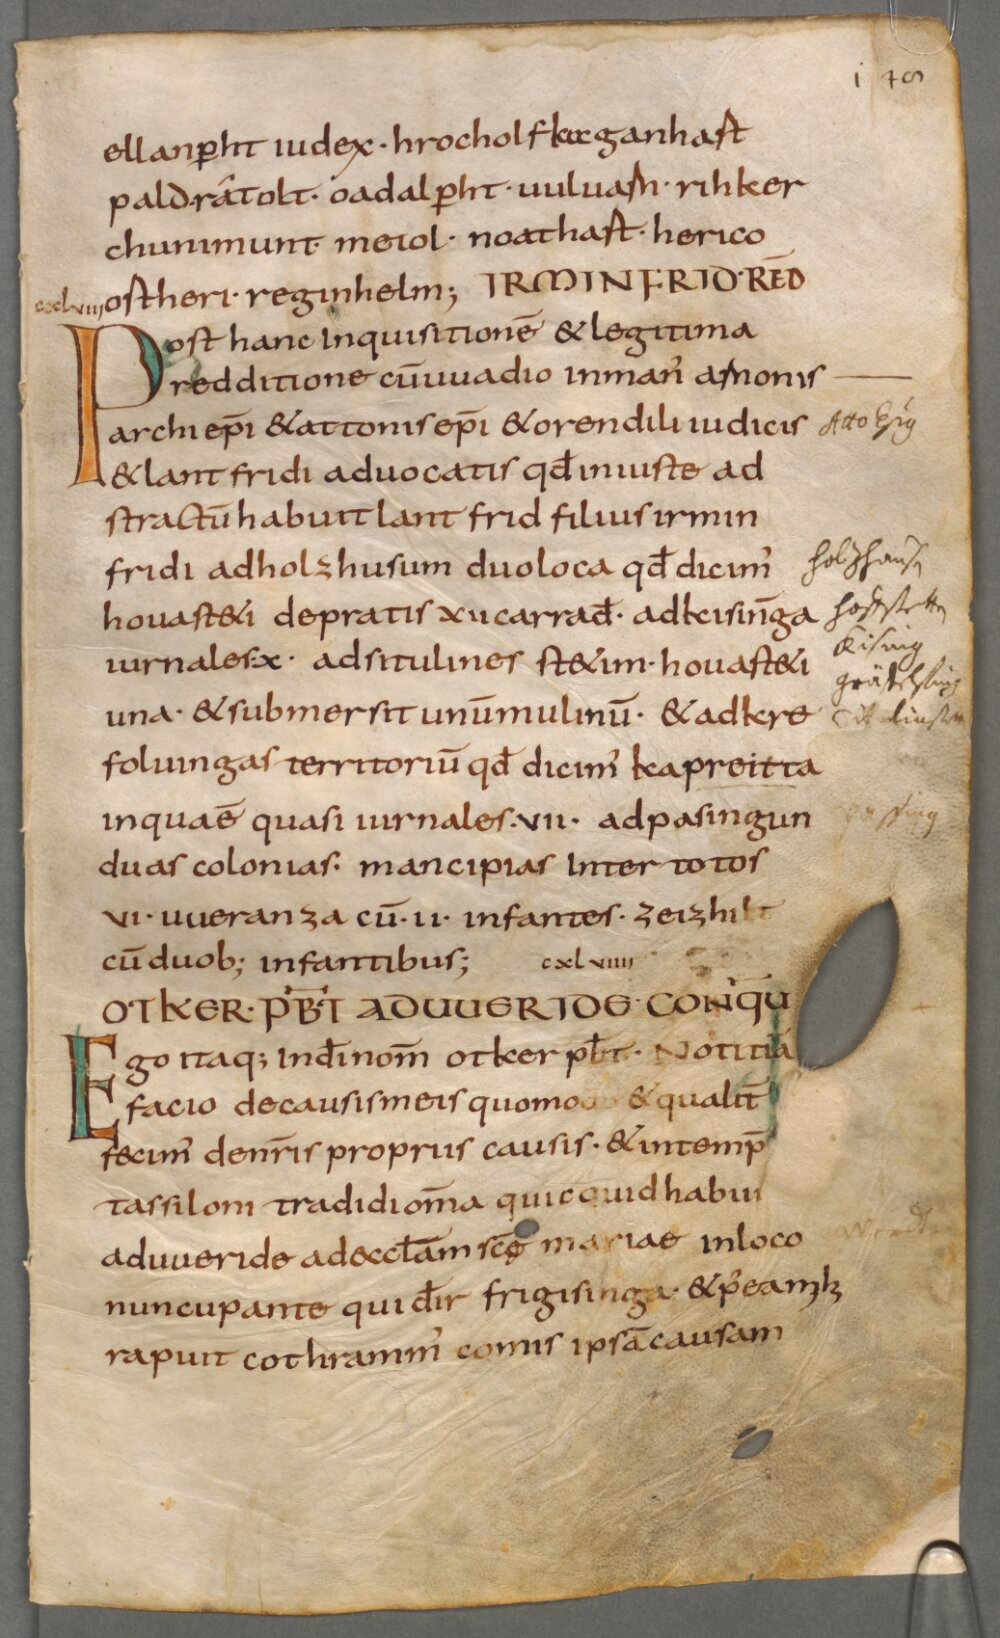 i 78
ellanp̄ht iudex · hrocholf kaganhaft
pald·ratolt · oadalp̄ht · uuluarh · rihker
chunimunt · meiol · noathaft · herico
cxlviii ostheri · reginhelm; IRMINFRID·RED̄
Post hanc inquisitionē & legitima
redditione cū uuadio in man᾿ arnonis
archiep̄i & attonis ep̄i & orendili iudicis
Atto Ep̄us
& lantfridi aduocatis qđ iniuste ad
stractū habuit lantfrid filius irmin
fridi ad holzhusum duo loca qđ dicim᾿
holzhausn
houasteti de pratis xii carrađ · ad keisinga
hofstettn
iurnales·x· ad situlines stetim · houasteti
Kising
una · & submersit unū mulinū · & ad kre
foluingas territoriū qđ dicim᾿ kapreitta
in qua ē quasi iurnales·vii· ad pasingun
pasing
duas colonias · mancipias inter totos
vi · uueranza cū·ii· infantes · zeizhilt
cū duob; infantibus; cxlviiii
OTKER·PBT AD UUERIDE·CONQU
Ego itaq; in dī nom̄ otker pb̄t · Notitia
facio de causis meis quomodo & qualit̄
fecim᾿ de nr̄is propriis causis · & in temp̄
tassiloni tradidi om̄a quicquid habui
ad uueride ad ecclām scē mariae in loco
nuncupante qui dr̄ frigisinga · & p̄ea mihi
rapuit cothramm᾿ comis ipsā causam